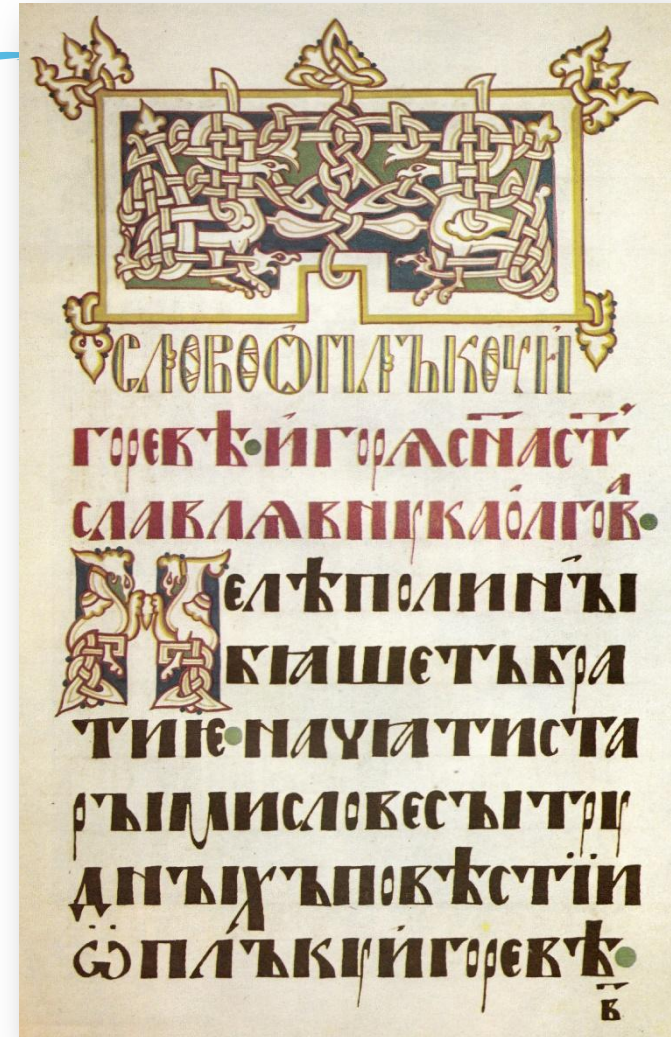 СЛОВОѾПЛЪКОЧИ
ГОРЕВѢ·И҆ГОРѦСН҃АСТ҃
СЛАВЛѦВНꙊКАО҆ЛГОВ҃ⷶ·
НЕЛѢПОЛИНЪІ
БꙖШЕТЪБРА
ТИѤ·НАЧꙖТИСТА
РЪІМИСЛОВЕСЪІТРꙊ
ДНЪІХЪПОВѢСТЇИ
ѾПЛЪКꙊИ҆ГОРЕВѢ·
в҃